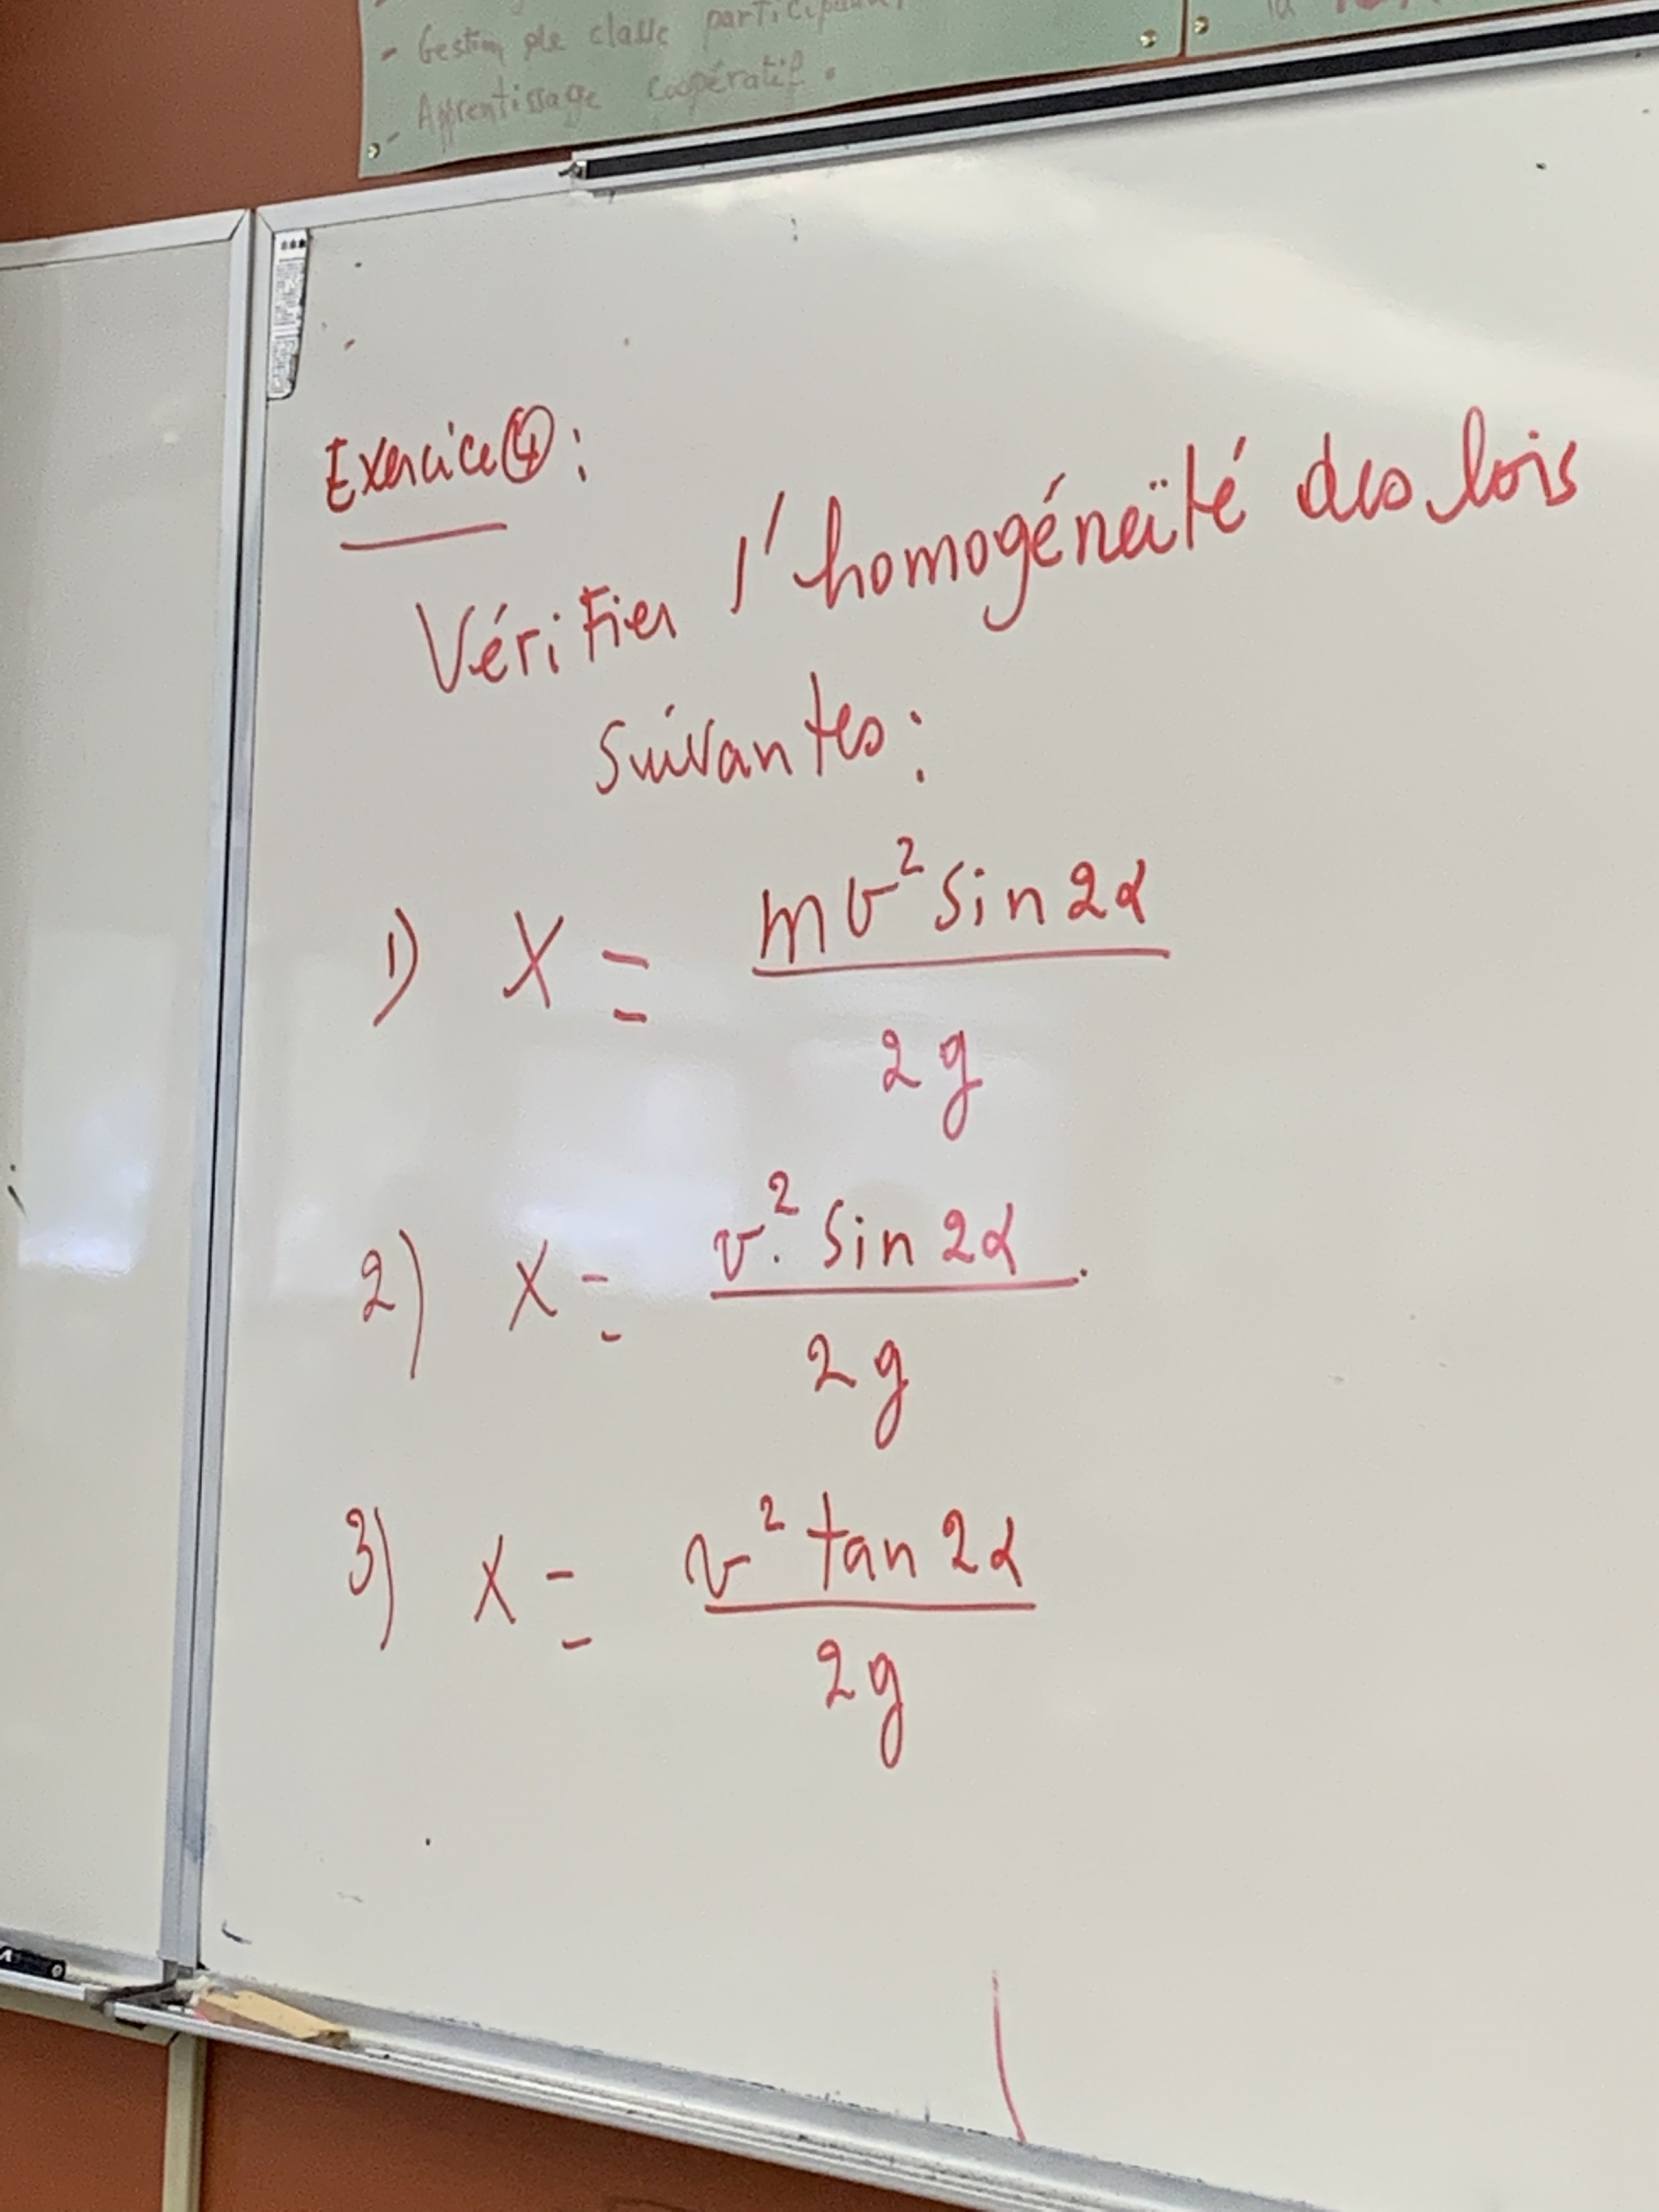 - Gestion de classe
- Apprentissage coopératif.
Exercice ④ :
Vérifier l'homogénéïté des lois
suivantes :
1) X = mv² sin 2α / 2g
2) X = v². sin 2α / 2g
3) X = v² tan 2α / 2g